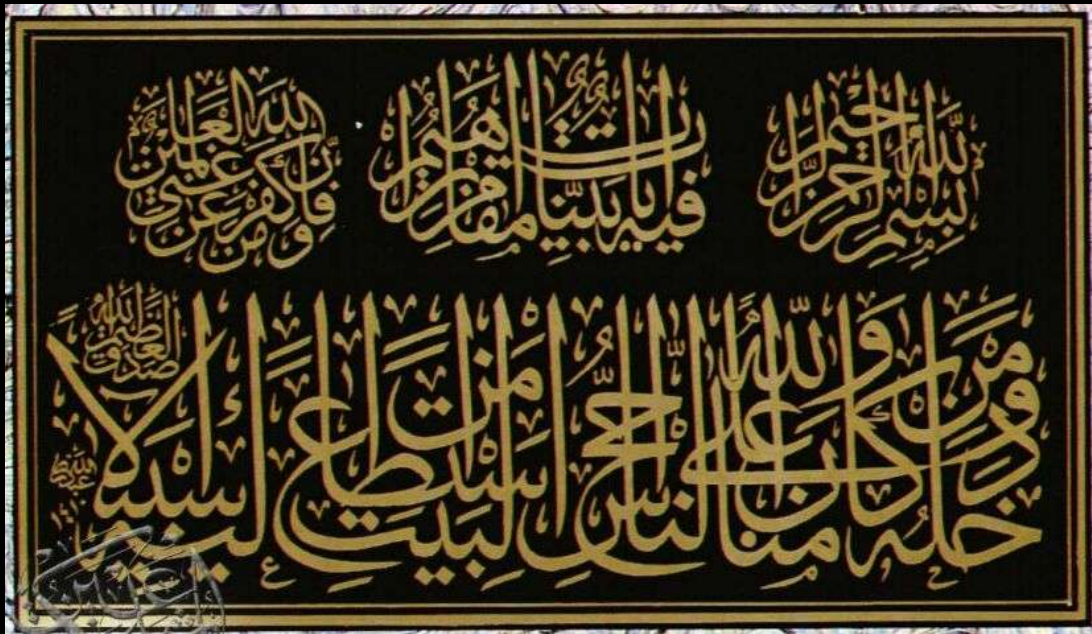 بِسْمِ اللَّهِ الرَّحْمَنِ الرَّحِيمِ
فِيهِ آيَاتٌ بَيِّنَاتٌ مَقَامُ إِبْرَاهِيمَ
وَمَنْ دَخَلَهُ كَانَ آمِنًا وَلِلَّهِ عَلَى النَّاسِ حِجُّ الْبَيْتِ مَنِ اسْتَطَاعَ إِلَيْهِ سَبِيلًا
وَمَنْ كَفَرَ فَإِنَّ اللَّهَ غَنِيٌّ عَنِ الْعَالَمِينَ
صدق الله العظيم